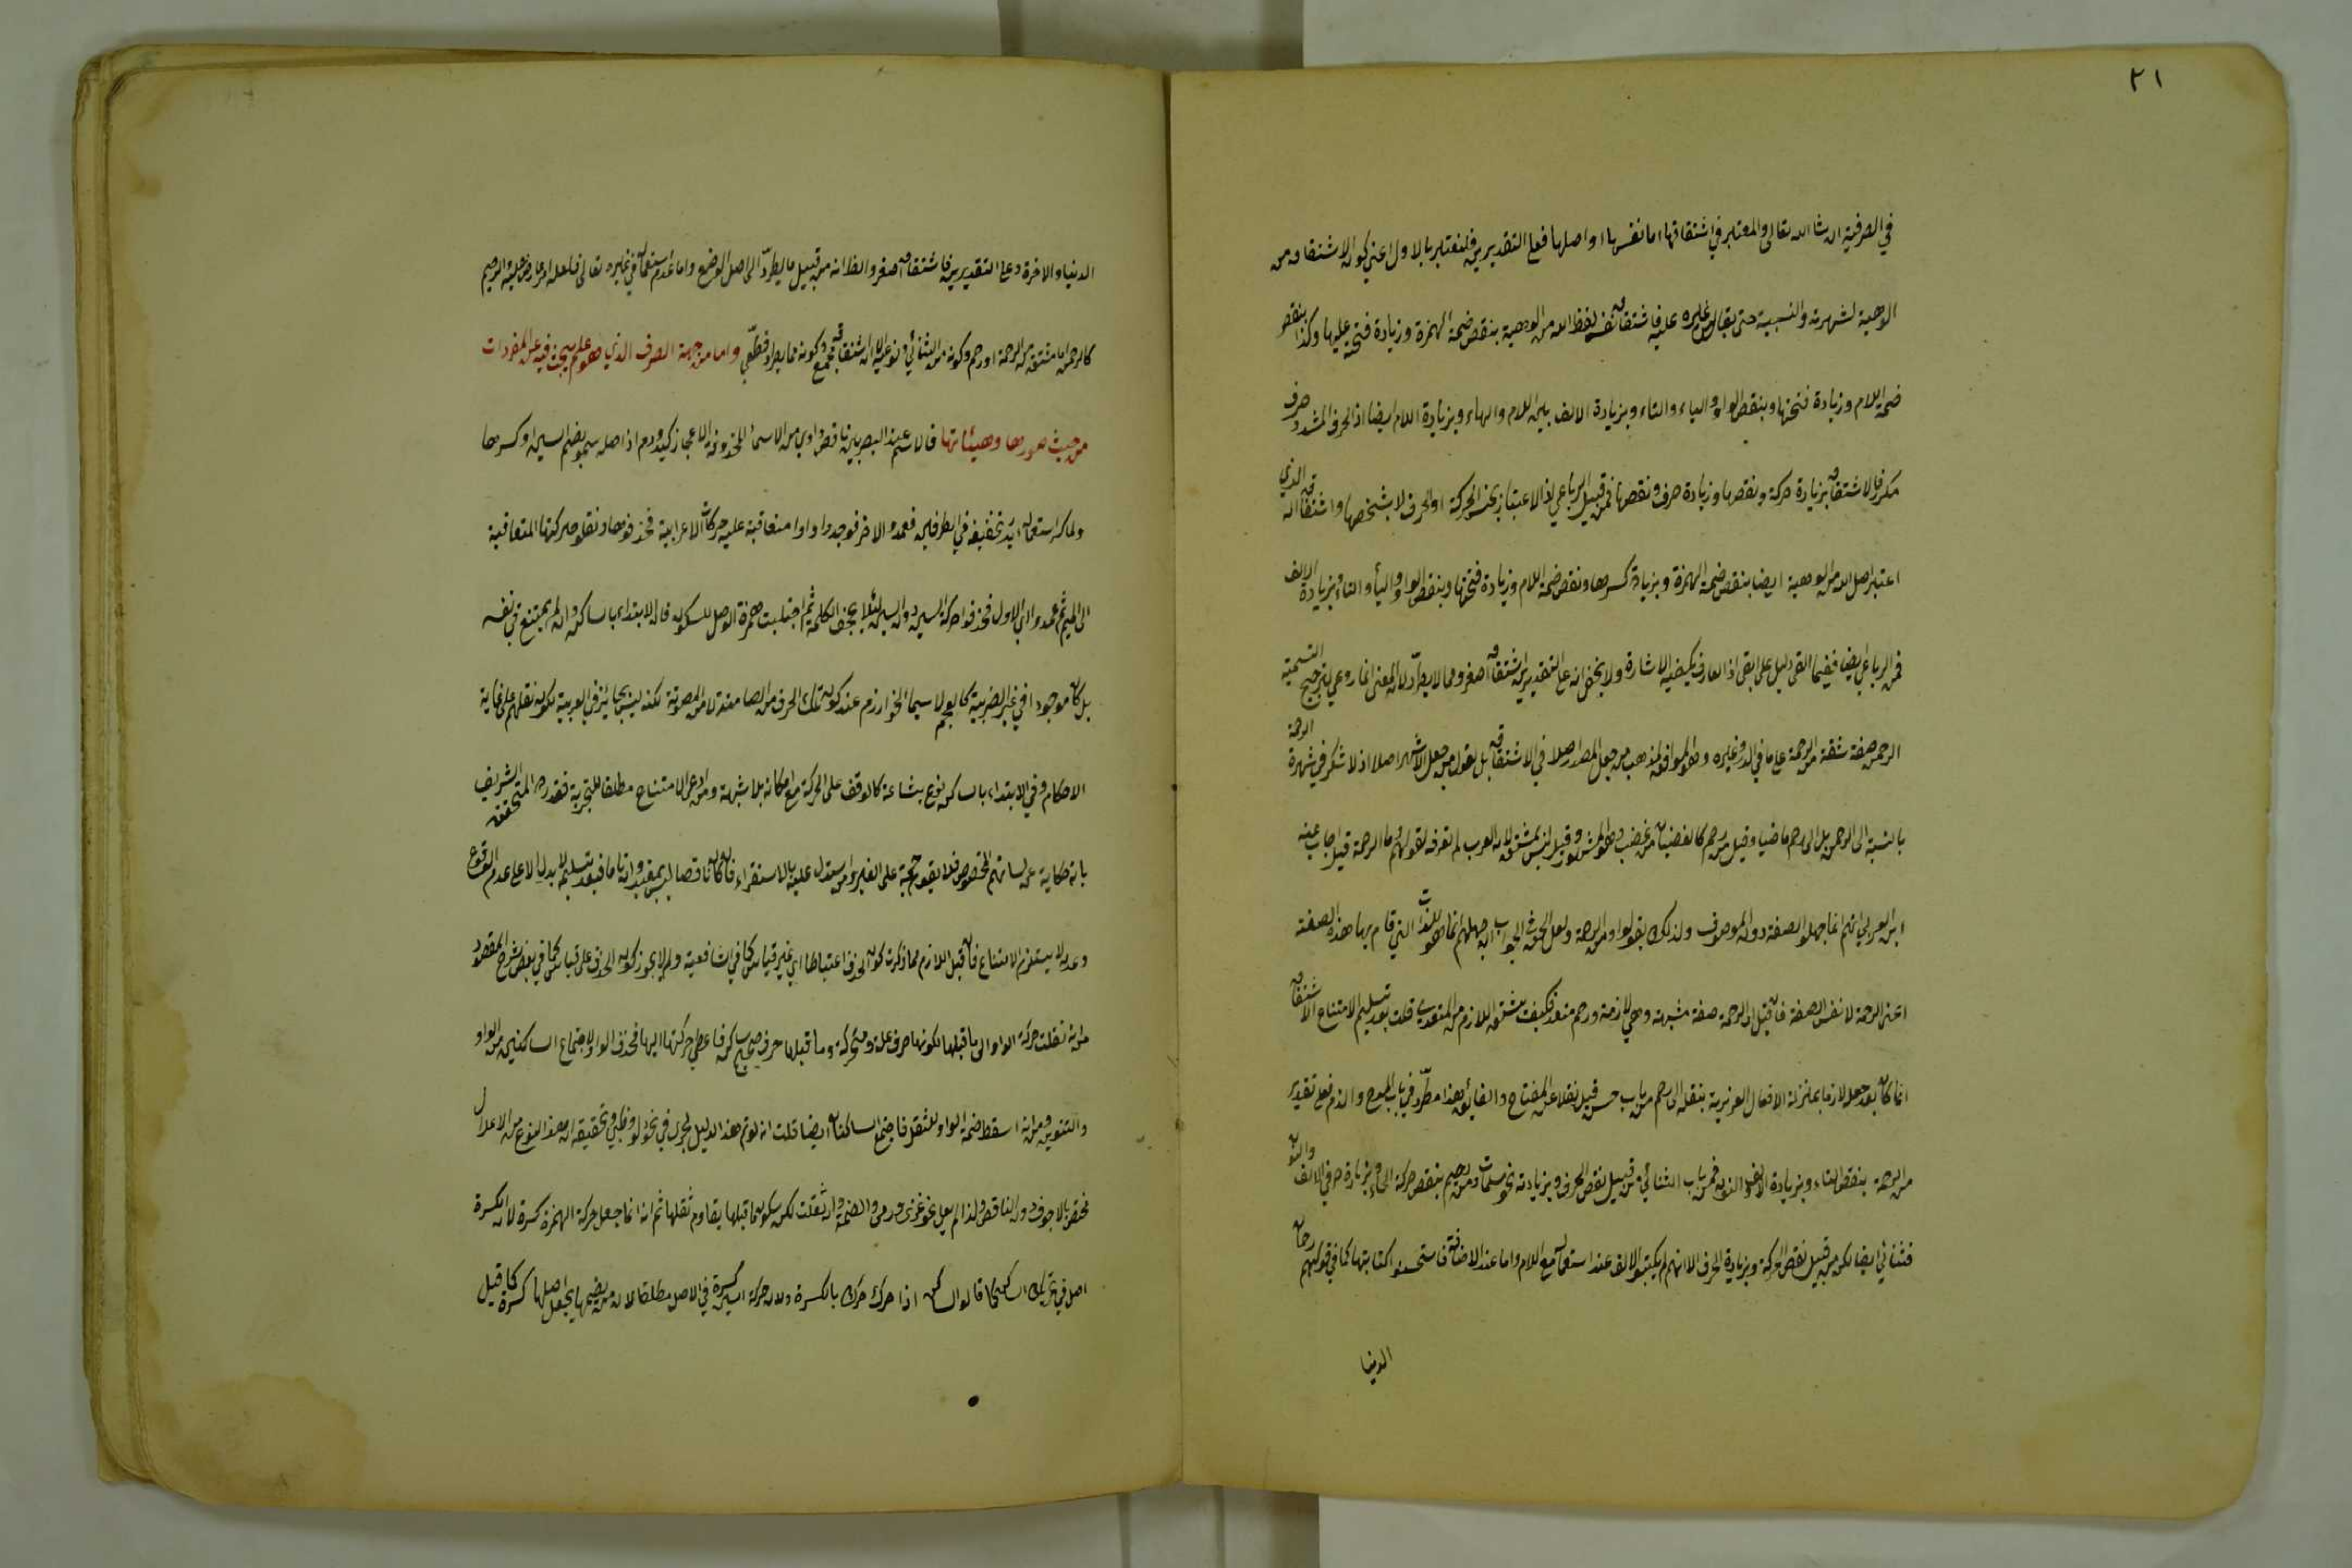 ٢١
في الصرفية ان شا الله تعالى والمعتبر في اشتقاقها اما نفسها او اصلها فعلى التقديرين فلنعتبر بالاول اعني كون الاشتقاق من
الوهية لشهرته والنسبية حتى يقال غيره عليه فاشتقاق لفظ الله من الوهية بنقص ضمة الهمزة وزيادة فتحة عليها وكذا بنقص
ضمة اللام وزيادة فتحتها وبنقص الواو والياء والتاء وبزيادة الالف بين اللام والهاء وبزيادة اللام ايضا اذ الحرف المشدد حرف
مكرر فالاشتقاق بزيادة حركة ونقصها وزيادة حرف ونقصها فمن قبيل الرباعي اذ الاعتبار بجنس الحركة او الحرف لا بشخصها واشتقاق اله الذي
اعتبر اصل الله من الوهية ايضا بنقص ضمة الهمزة وبزيادة كسرها ونقص ضمة اللام وزيادة فتحتها وبنقص الواو والياء والتاء وبزيادة الالف
فمن الرباعي ايضا ففيما القى دليل على ابقى اذ العارف يكفيه الاشارة ولا يخفى انه على التقديرين اشتقاق اصغر ومما لا يطرد لان المعنى انما روعي لترجيح التسمية
الرحمن صفة مشتقة من الرحمة على ما في الدر وغيره وهو الموافق لمذهب من جعل المصدر اصلا في الاشتقاق بل نقول من جعل الاشهر اصلا اذ لا شك في شهرة الرحمة
بالنسبة الى الرحمن بل الى رحم ماضيا وقيل من رحم كالغضبان من غضب وهو المشهور وقيل ليس بمشتق لان العرب لم تعرفه لقولهم وما الرحمة قيل اجاب عنه
ابن العربي انهم انما جهلوا الصفة دون الموصوف ولذلك لم يقولوا ومن الرحمن ولعل الحق في الجواب ان جهلهم انما هو للذات التي قام بها هذه الصفة
اعني الرحمة لا نفس الصفة فان قيل ان الرحمة صفة مشبهة وهي لازمة ورحم متعد فكيف يشتق اللازم من المتعدي قلت بعد تسليم الامتناع الاشتقاق
انما كان بعد جعل لازما بمنزلة الافعال الغريزية بنقله الى رحم من باب حسن قيل نقلا عن المفتاح والفائق هذا مطرد في باب المدح والذم فعلى تقدير
من الرحمة بنقص التاء وبزيادة الالف والنون فمن باب الثنائي من قبيل نقص الحرف وبزيادته نحو مسلمات ومن رحم بنقص حركة الحاء وبزيادة حرفي الالف والنون
فثنائي ايضا لكن من قبيل نقص الحركة وبزيادة الحرف الا انهم لم يكتبوا الالف عند استعماله مع اللام واما عند الاضافة فاستحسنوا كتابتها كما في قولهم رحمان
الدنيا
الدنيا والاخرة وعلى التقديرين فاشتقاق اصغر والظاهر انه من قبيل ما يطرد الى اصل الوضع واما عدم استعماله في غيره تعالى فلعله امر عارض عليه الرحيم
كالرحمن اما مشتق من الرحمة او رحم وكونه من الثنائي ونوعه الاشتقاق وكونه مما يطرد قطعي واما من جهة الصرف الذي هو علم يبحث فيه عن المفردات
من حيث صورها وهيئاتها فالاسم عند البصريين ناقص واوي من الاسماء المحذوفة الاعجاز كيد ودم اذ اصله سمو بضم السين او كسرها
ولما كثر استعماله اريد تخفيفه في الطرفين فعمدوا الاخر فوجدوا واوا متعاقبة عليه حركات الاعرابية فحذفوها ونقلوا حركتها المتعاقبة
الى الميم ثم عمدوا الى الاول فحذفوا حركة السين دون السين لئلا يجحف الكلمة ثم اجتلبت همزة الوصل للسكون فان الابتداء بالساكن وان لم يمتنع في نفسه
بل كان موجودا في غير العربية كالعجم لا سيما الخوارزم عند كون تلك الحرف من الصامتة لا من المصوتة لكنه ليس بجائز في العربية لكون نقلهم على غاية
الاحكام وفي الابتداء بالساكن نوع بشاعة كالوقف على الحركة مع امكانه بلا شبهة ومن ادعى الامتناع مطلقا للتجربة فقد رده المحقق الشريف
بانه حكاية عن لسانهم المخصوص فلا يقوم حجة على الغير وان استدل عليه بالاستقراء فان كان ناقصا ليس بمفيد وان تاما فبعد تسليمه لا يدل الا على عدم الوقوع
وعدمه لا يستلزم الامتناع فان قيل اللازم مما ذكرت كون الحذف اعتباطا اي غير قياس كما في الشافية ولم لا يجوز كون الحذف على قياس كما في بعض شروح المقصود
من انه نقلت حركة الواو الى ما قبلها لكونها حرف علة ومتحركة وما قبلها حرف صحيح ساكن فاعطي حركتها اليها فحذف الواو لاجتماع الساكنين من الواو
والتنوين ومن انه اسقط ضمة الواو للثقل فاجتمع الساكنان ايضا قلت انه لو تم هذا الدليل لجرى في نحو دلو وظبي وتحقيقه ان هذا النوع من الاعلال
مختص بالاجوف دون الناقص ولذا لم يعل نحو غزو ورمي والضمة وان ثقلت لكن سكون ما قبلها يقاوم ثقلها ثم انه انما جعل حركة الهمزة كسرة لان الكسرة
اصل في تحريك الساكن كما قالوا الساكن اذا حرك حرك بالكسرة ولان حركة السين كسرة في الاصل مطلقا لان من يضمها يجعل اصلها كسرة كما قيل